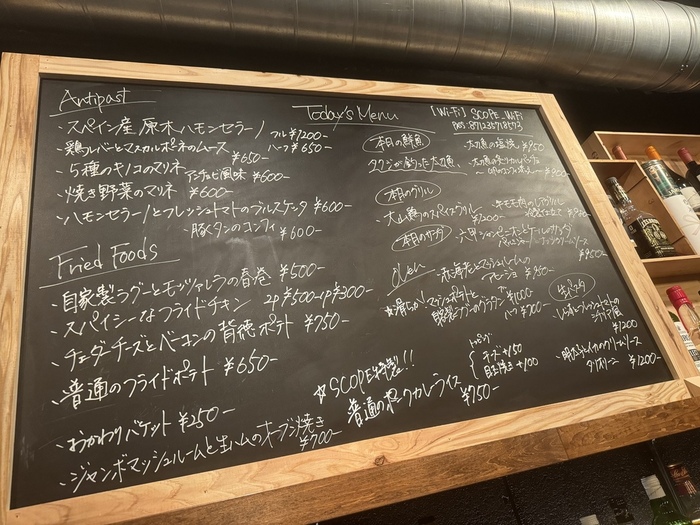 Antipast
・スペイン産 原木ハモンセラーノ フル¥1200-
ハーフ¥650-
・鶏レバーとマスカルポーネのムース
¥650-
・5種のキノコのマリネ アンチョビ風味 ¥600-
・焼き野菜のマリネ ¥600-
・ハモンセラーノとフレッシュトマトのブルスケッタ ¥600-
・豚タンのコンフィ ¥600-
Fried Foods
・自家製ラグーとモッツァレラの春巻 ¥500-
・スパイシーなフライドチキン 2p ¥500- 1p ¥300-
・チェダーチーズとベーコンの背徳ポテト ¥750-
・普通のフライドポテト ¥650-
・おかわりバケット ¥250-
・ジャンボマッシュルームと生ハムのオーブン焼き
¥700-
Today's Menu
【Wi-Fi】 SCOPE_WiFi
本日の鮮魚
・太刀魚の塩焼 ¥950
タクジが釣った太刀魚
¥900-
本日のグリル
・大山鶏のスパイスグリル
¥1200-
本日のサラダ
¥900-
Oven
¥950-
☆滑らかマッシュポテトと
自家製ラグーのグラタン ¥1000
ハーフ ¥700-
生パスタ
¥1200
・明太子とイカのクリームソース
タリオリーニ ¥1200-
☆SCOPE特製!!
普通のポークカレーライス
¥750-
トッピング
チーズ +150
目玉焼き +100